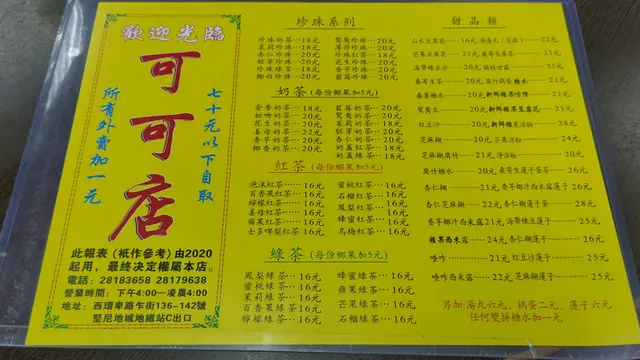 歡迎光臨
可可店
七十元以下自取
所有外賣加一元
此報表(祗作參考)由2020
起用，最終決定權屬本店。
電話：28183658 28179638
營業時間：下午4:00—凌晨4:00
地址：西環卑路乍街136-142號
堅尼地城地鐵站C出口
珍珠系列
珍珠奶茶…18元 鴛鴦珍珠…20元
茉莉珍珠…18元 薄荷珍珠…20元
杏仁珍珠…18元 紅豆珍珠…20元
胚芽珍珠…20元 花生珍珠…20元
珍珠綠茶…18元 香芋珍珠…20元
椰白珍珠…20元 藍莓珍珠…20元
奶茶(每份椰果加5元)
金香奶茶…18元 藍莓奶茶…20元
奶茶…20元 鴛鴦奶茶…20元
花生奶茶…20元 茉莉奶茶…18元
姜母奶茶…22元 胚芽奶茶…20元
香芋奶茶…20元 杏仁奶茶…20元
椰香奶茶…20元 奶蓋紅茶…18元
奶蓋綠…18元
紅茶(每份椰果加5元)
泡沫紅茶…16元 蜜桃紅茶…16元
百香果紅茶…16元 石榴紅茶…16元
檸檬紅茶…16元 鳳梨紅茶…16元
姜母紅茶…16元 蜂蜜紅茶…16元
蘋果紅茶…16元 烏梅紅茶…16元
士多啤梨紅茶…16元
綠茶(每份椰果加5元)
鳳梨綠茶…16元 蜂蜜綠茶…16元
蜜桃綠茶…16元 蘋果綠茶…16元
茉莉綠茶…16元 芒果綠茶…16元
百香果綠茶…16元 石榴綠茶…16元
檸檬綠茶…16元
甜品類
山水豆腐花…16元
芒果豆腐花…21元
海帶綠豆沙…20元
桑寄生茶…20元 腐竹鷄蛋糖水…21元
番薯糖水…20元
鴛鴦豆…20元
紅豆沙…20元
芝麻糊…20元
芝麻糊腐竹…21元
腐竹糖水…20元 桑寄生蓮子蛋茶…26元
杏仁糊…21元 香芋椰汁西米露蓮子…26元
杏仁芝麻糊…22元
香芋椰汁西米露21元 海帶綠豆蓮子…25元
糖果西米露…21元 杏仁糊蓮子…26元
喳咋…21元 紅豆沙蓮子…25元
喳咋西米露…22元 芝麻糊蓮子…25元
另加：湯丸六元，鷄蛋二元，蓮子六元
任何雙拼糖水加一元